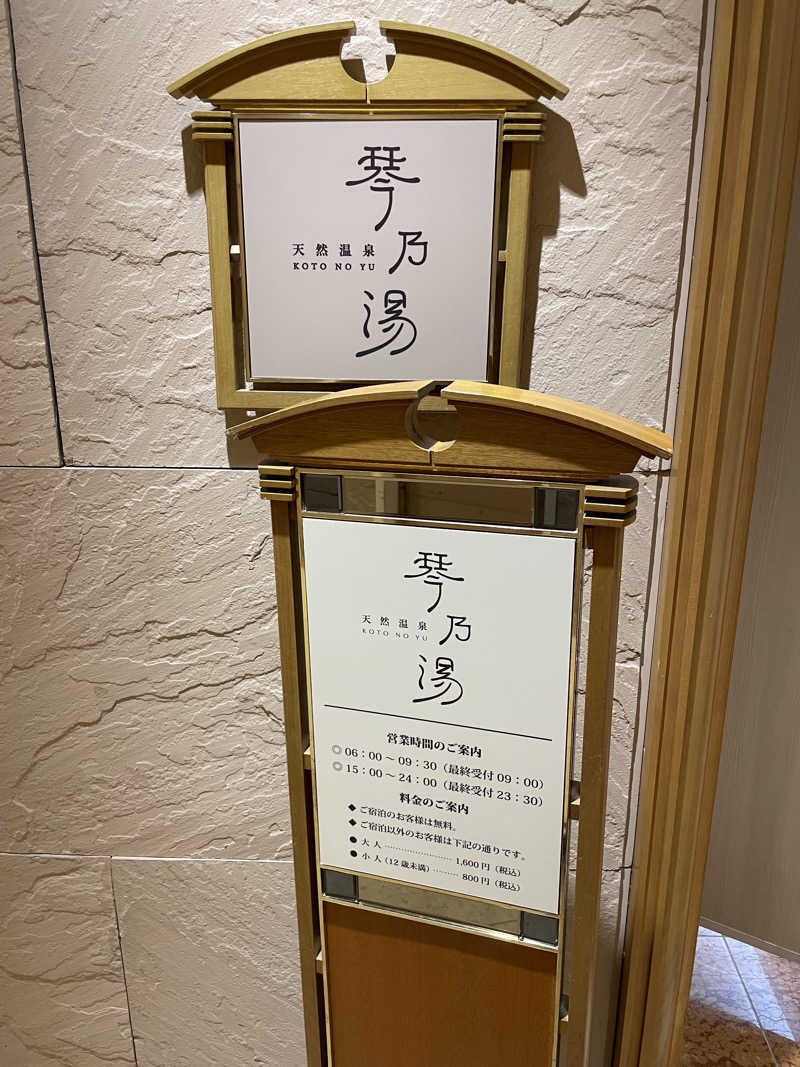 琴乃湯
天然温泉
KOTO NO YU
琴乃湯
天然温泉
KOTO NO YU
営業時間のご案内
◎06：00～09：30（最終受付09：00）
◎15：00～24：00（最終受付23：30）
料金のご案内
◆ご宿泊のお客様は無料。
◆ご宿泊以外のお客様は下記の通りです。
●大人……………………1,600円（税込）
●小人（12歳未満）………800円（税込）